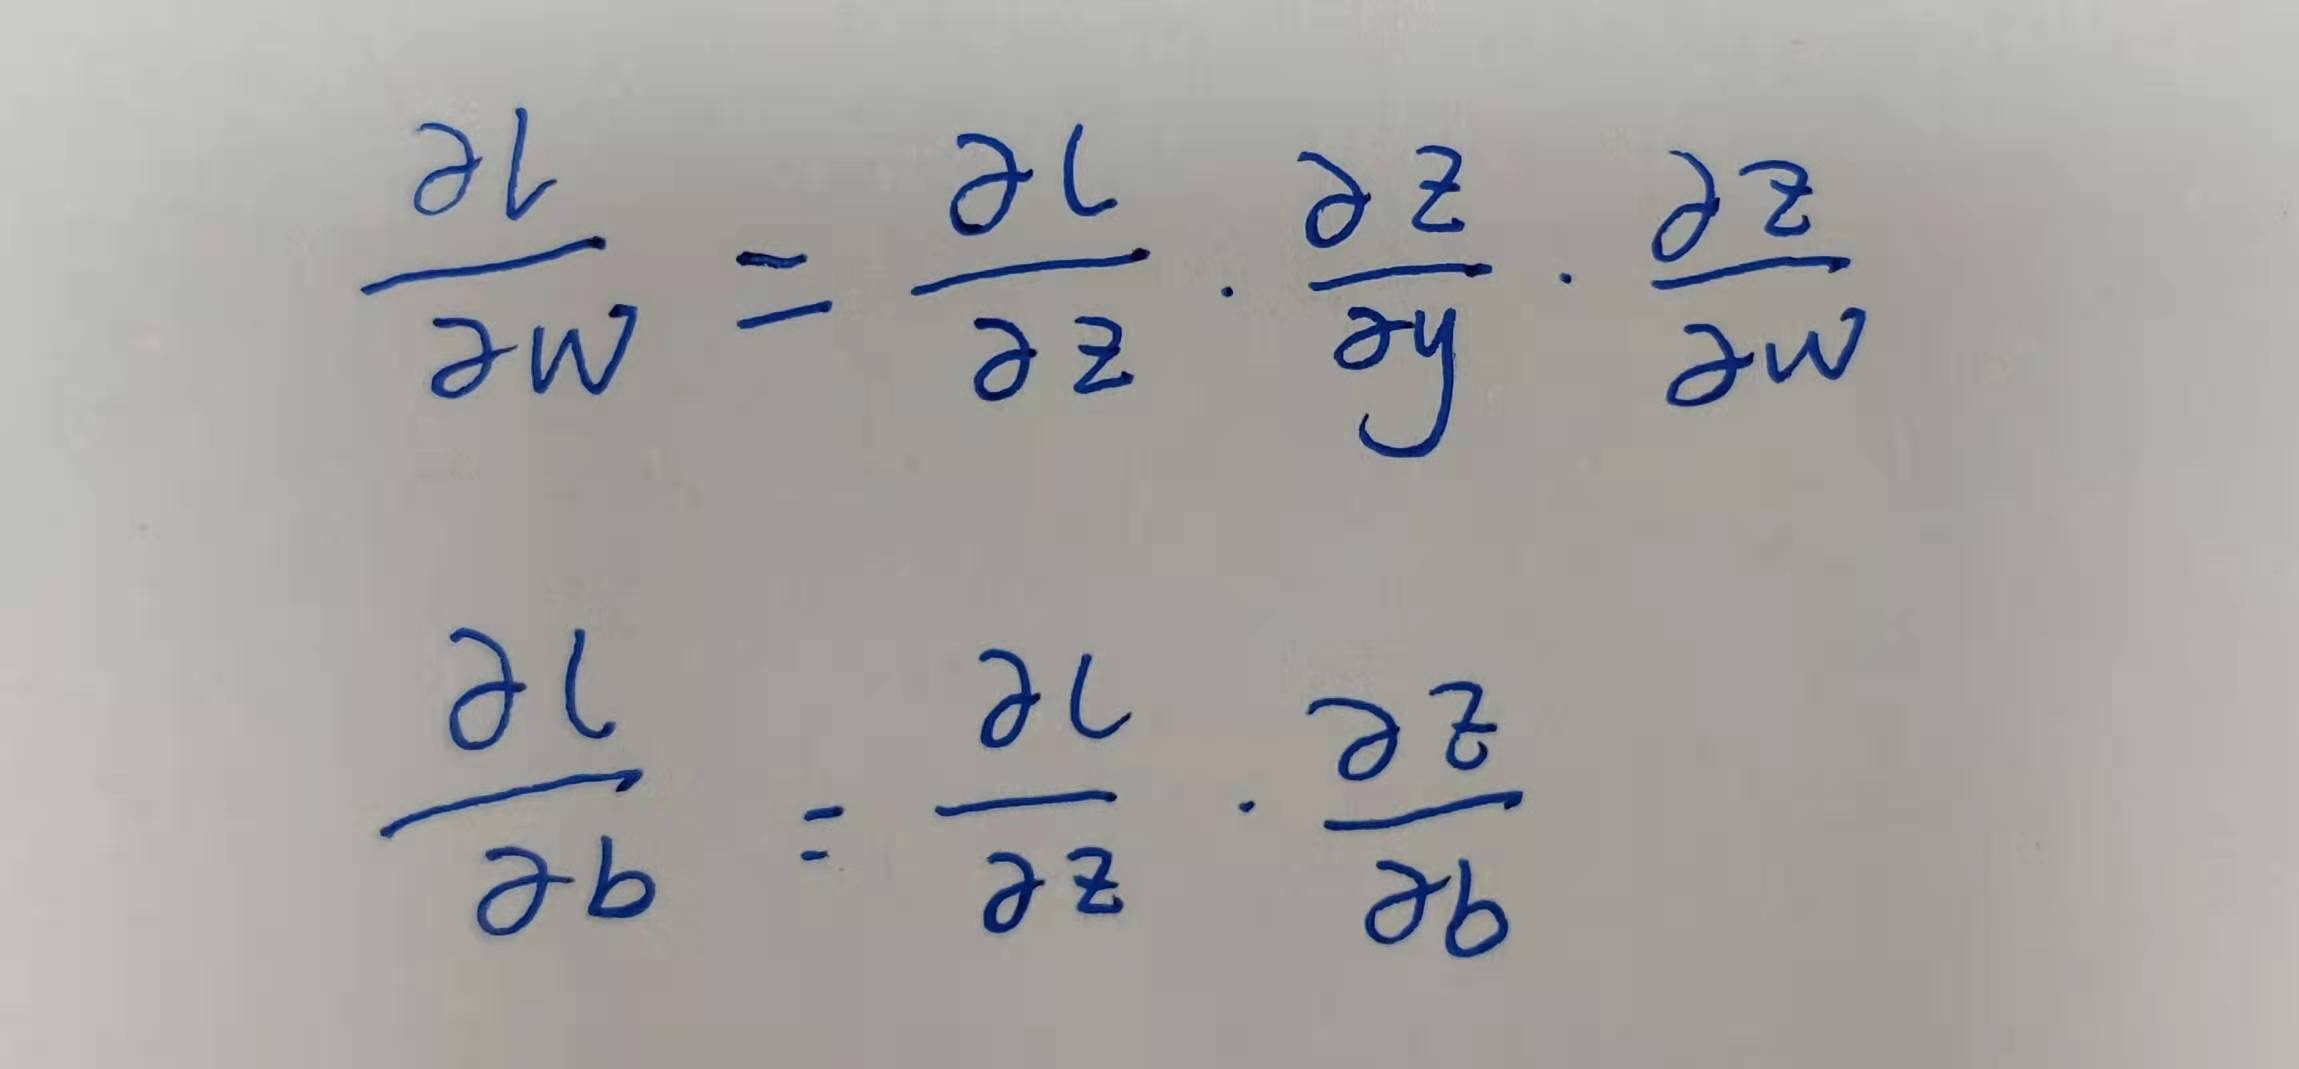 ∂l/∂w = ∂l/∂z · ∂z/∂y · ∂z/∂w
∂l/∂b = ∂l/∂z · ∂z/∂b